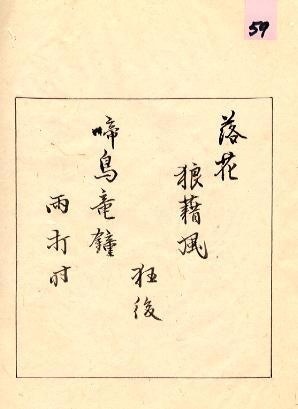 59
落花
狼藉風
狂後
啼鳥竜鐘
雨打时